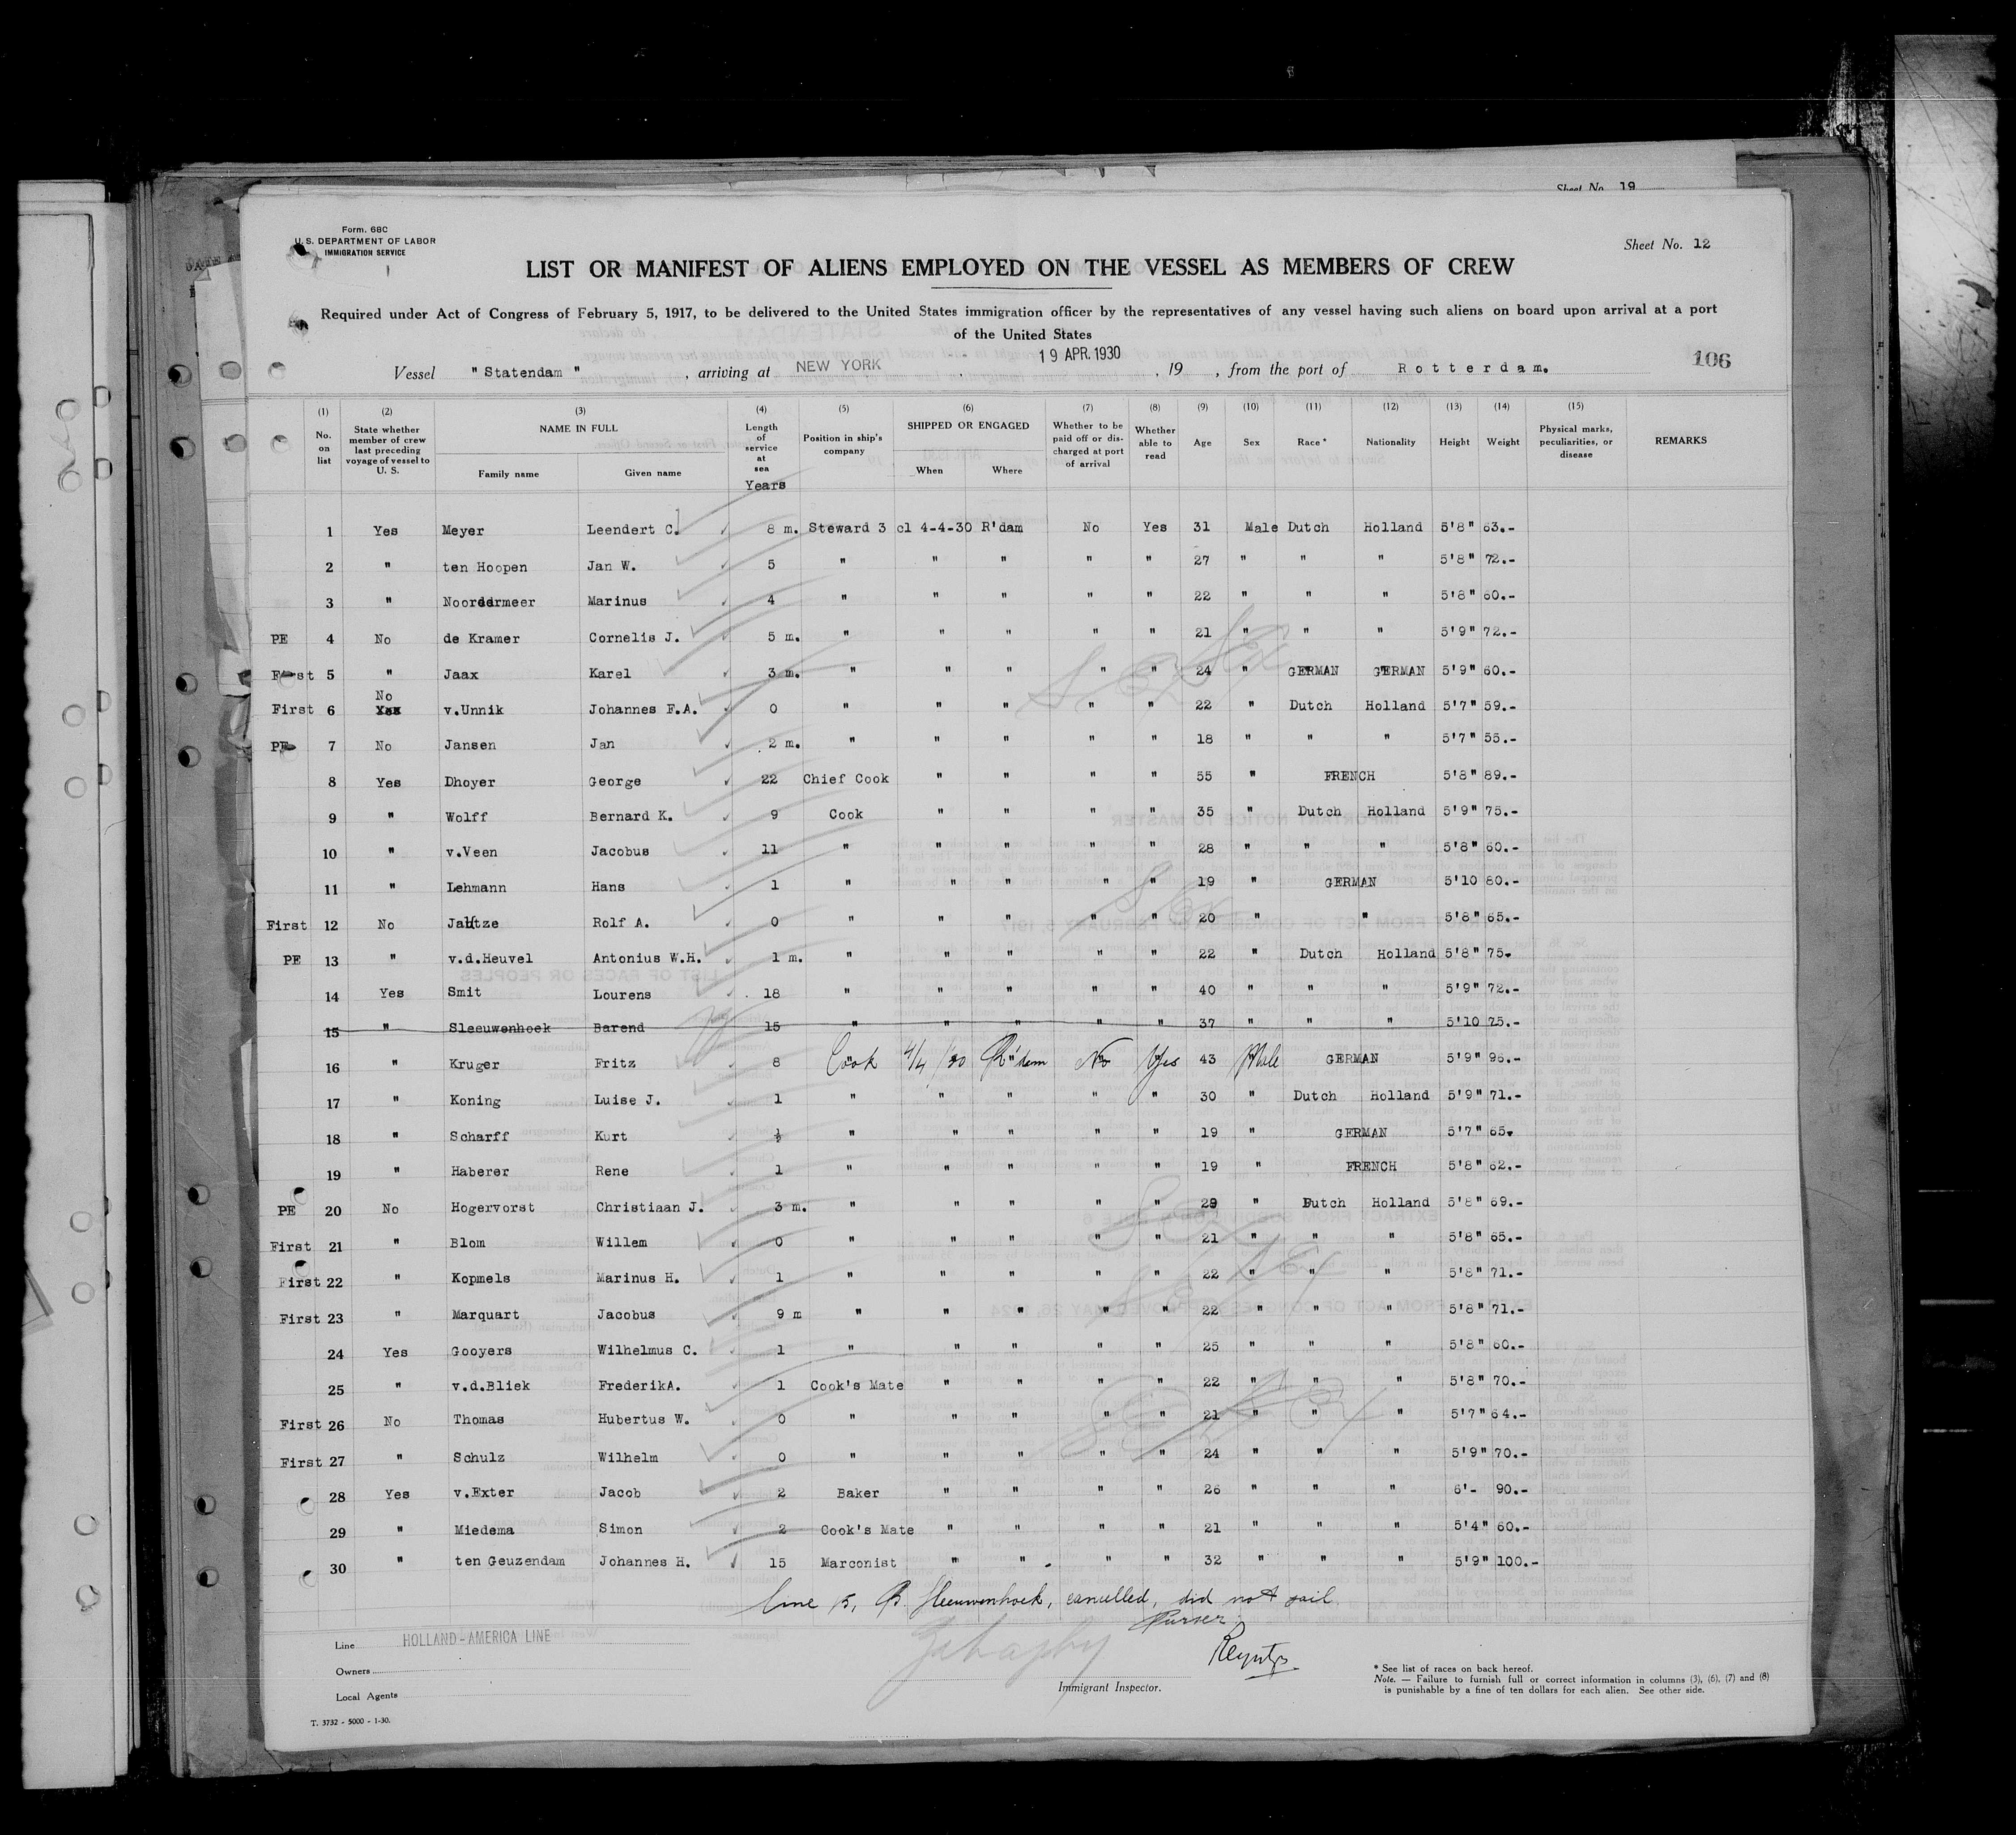 Sheet No. 19
Form. 680
U. S. DEPARTMENT OF LABOR
IMMIGRATION SERVICE
Sheet No. 12
LIST OR MANIFEST OF ALIENS EMPLOYED ON THE VESSEL AS MEMBERS OF CREW
Required under Act of Congress of February 5, 1917, to be delivered to the United States immigration officer by the representatives of any vessel having such aliens on board upon arrival at a port
of the United States
Vessel "Statendam", arriving at NEW YORK 19 APR. 1930, 19 , from the port of Rotterdam. 106
(1) (2) (3) (4) (5) (6) (7) (8) (9) (10) (11) (12) (13) (14) (15)
No. on list State whether member of crew last preceding voyage of vessel to U. S. NAME IN FULL Family name Given name Length of service at sea Years Position in ship's company SHIPPED OR ENGAGED When Where Whether to be paid off or discharged at port of arrival Whether able to read Age Sex Race * Nationality Height Weight Physical marks, peculiarities, or disease REMARKS
1 Yes Meyer Leendert C. 8 m. Steward 3 cl 4-4-30 R'dam No Yes 31 Male Dutch Holland 5'8" 63.-
2 " ten Hoopen Jan W. 5 " " " " " 27 " " " 5'8" 72.-
3 " Noordermeer Marinus 4 " " " " " 22 " " " 5'8" 60.-
PE 4 No de Kramer Cornelis J. 5 m. " " " " " 21 " " " 5'9" 72.-
First 5 " Jaax Karel 3 m. " " " " " 24 " GERMAN GERMAN 5'9" 60.-
First 6 No Yes v.Unnik Johannes F.A. 0 " " " " " 22 " Dutch Holland 5'7" 59.-
PE 7 No Jansen Jan 2 m. " " " " " 18 " " " 5'7" 55.-
8 Yes Dhoyer George 22 Chief Cook " " " " 55 " FRENCH 5'8" 89.-
9 " Wolff Bernard K. 9 Cook " " " " 35 " Dutch Holland 5'9" 75.-
10 " v.Veen Jacobus 11 " " " " " 28 " " " 5'8" 60.-
11 " Lehmann Hans 1 " " " " " 19 " GERMAN 5'10 80.-
First 12 No Rolf A. 0 " " " " " 20 " " 5'8" 65.-
PE 13 " v.d.Heuvel Antonius W.H. 1 m. " " " " " 22 " Dutch Holland 5'8" 75.
14 Yes Smit Lourens 18 " " " " " 40 " " " 5'9" 72.-
15 " Sleeuwenhoek Barend 15 " " " " " 37 " " " 5'10 75.-
16 " Kruger Fritz 8 Cook 4/4/30 R'dam No Yes 43 Male GERMAN 5'9" 96.-
17 " Koning Luise J. 1 " " " " " 30 " Dutch Holland 5'9" 71.-
18 " Scharff Kurt ½ " " " " " 19 " GERMAN 5'7" 65.
19 " Haberer Rene 1 " " " " " 19 " FRENCH 5'8" 62.-
PE 20 No Hogervorst Christiaan J. 3 m. " " " " " 29 " Dutch Holland 5'8" 69.-
First 21 " Blom Willem 0 " " " " " 21 " " " 5'8" 65.-
First 22 " Kopmels Marinus H. 1 " " " " " 22 " " " 5'8" 71.-
First 23 " Marquart Jacobus 9 m " " " " " 22 " " " 5'8" 71.-
24 Yes Gooyers Wilhelmus C. 1 " " " " " 25 " " " 5'8" 60.-
25 " v.d.Bliek FrederikA. 1 Cook's Mate " " " " 22 " " " 5'8" 70.-
First 26 No Thomas Hubertus W. 0 " " " " " 21 " " " 5'7" 64.-
First 27 " Schulz Wilhelm 0 " " " " " 24 " " " 5'9" 70.-
28 Yes v.Exter Jacob 2 Baker " " " " 26 " " " 6'- 90.-
29 " Miedema Simon 2 Cook's Mate " " " " 21 " " " 5'4" 60.-
30 " ten Geuzendam Johannes H. 15 Marconist " " " " 32 " " " 5'9" 100.-
line 15, B. Sleeuwenhoek, cancelled, did not sail
Purser
Line HOLLAND-AMERICA LINE
Owners
Local Agents
Immigrant Inspector.
* See list of races on back hereof.
Note. — Failure to furnish full or correct information in columns (3), (6), (7) and (8)
is punishable by a fine of ten dollars for each alien. See other side.
T. 3732 - 5000 - 1-30.